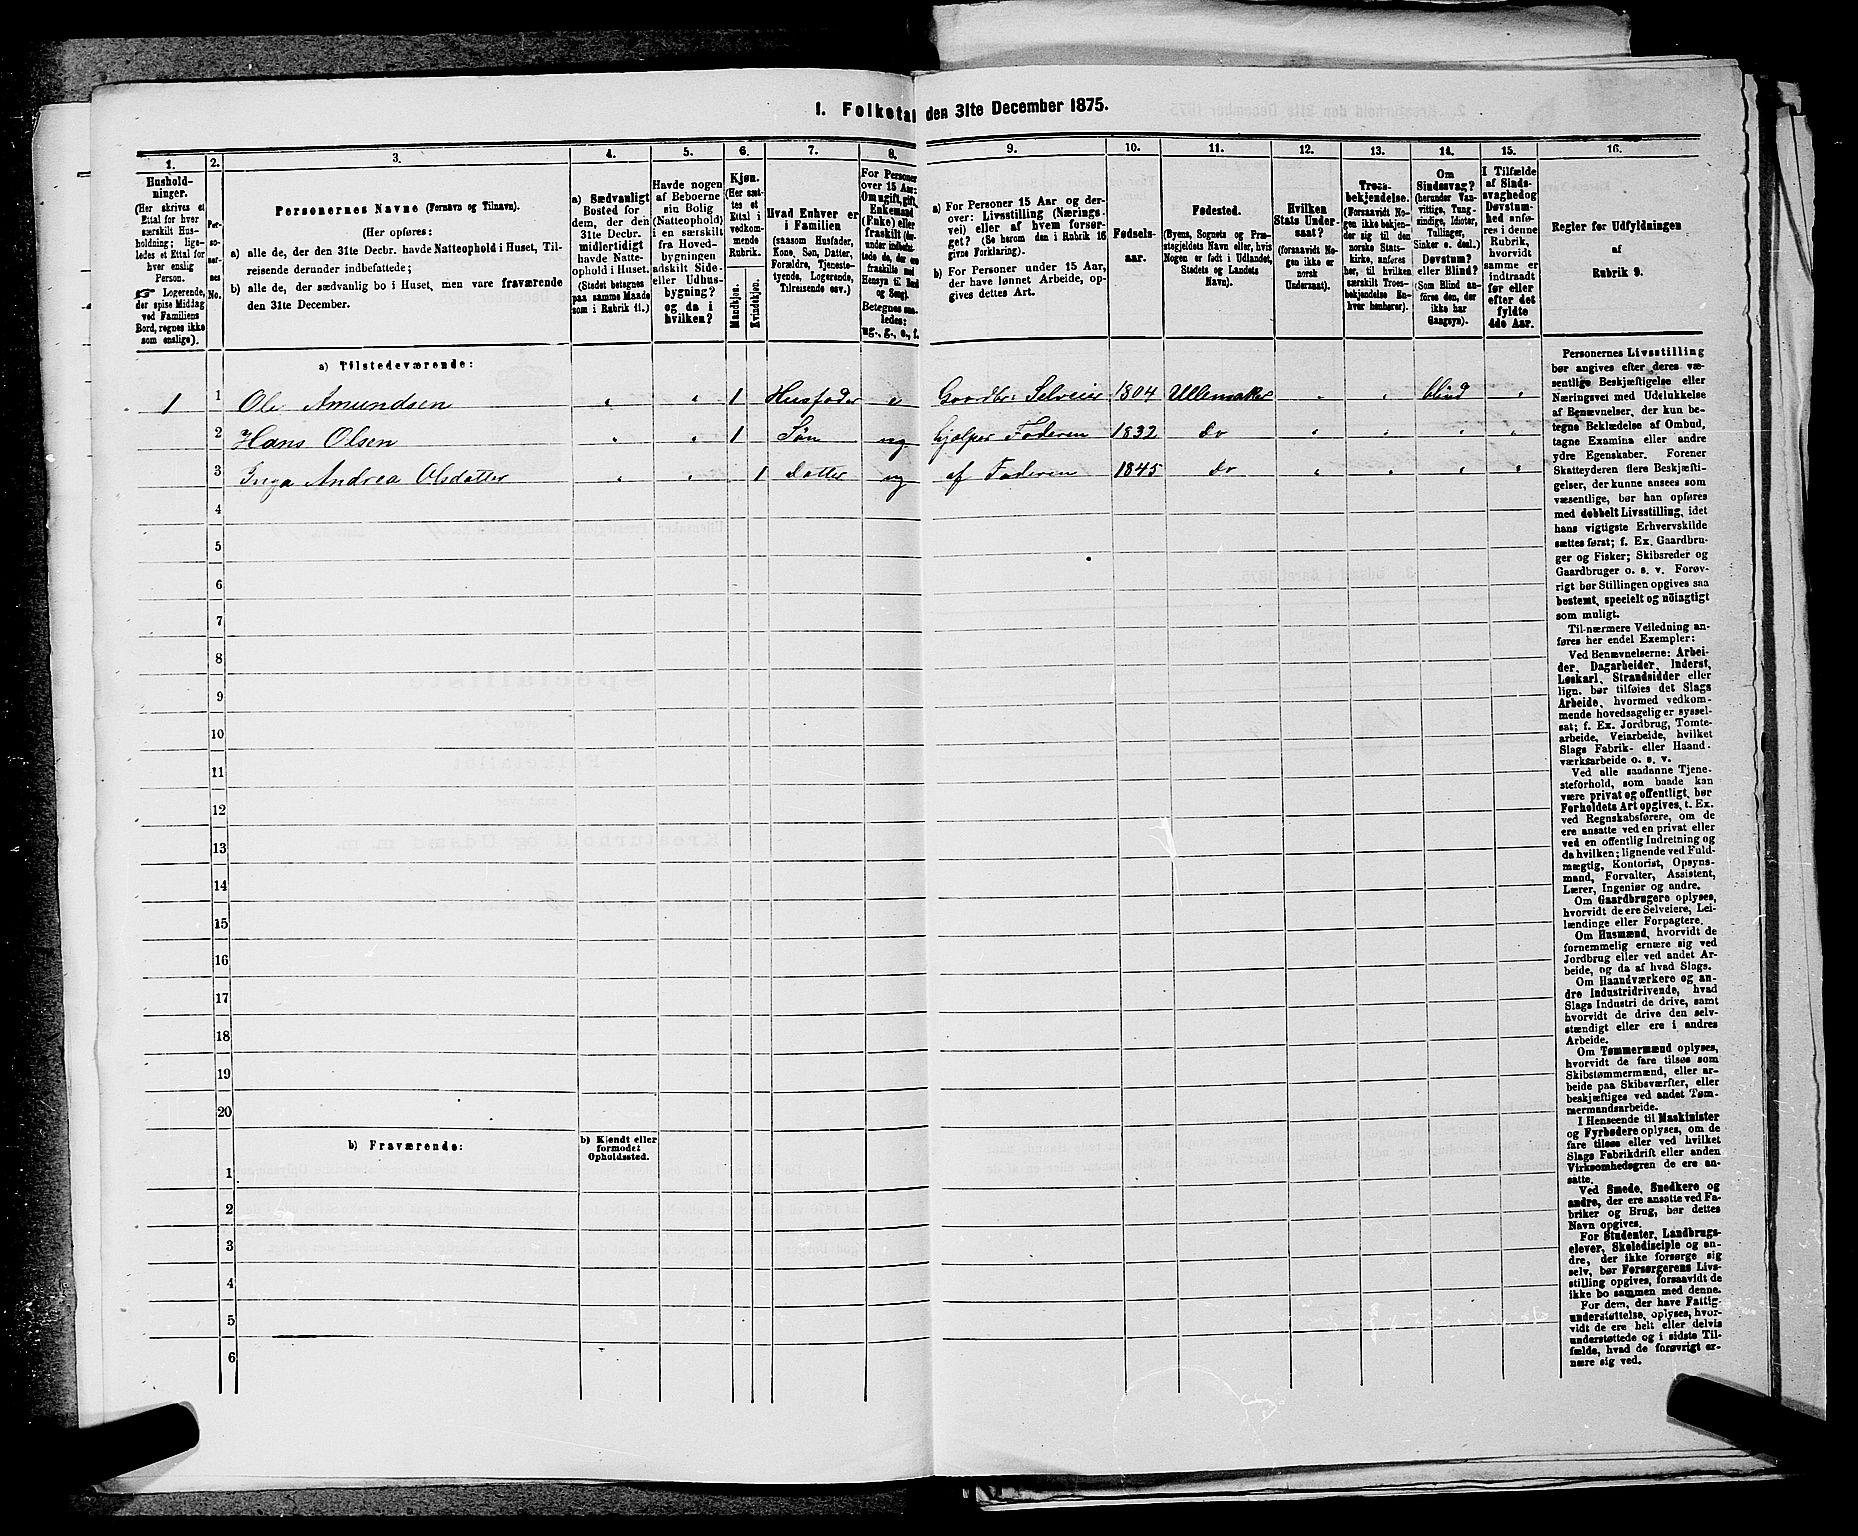 1. Folketal den 31te December 1875.
1.
Hushold-
ninger.
(Her skrives et
Ettal for hver
særskilt Hus-
holdning; lige-
ledes et Ettal for
hver enslig
Person.
Logerende,
der spise Middag
ved Familiens
Bord, regnes ikke
som enslige).
2.
Per-
so-
ner-
nes
No.
3.
Personernes Navne (Fornavn og Tilnavn).
(Her opføres:
a) alle de, der den 31te Decbr. havde Natteophold i Huset, Til-
reisende derunder indbefattede;
b) alle de, der sædvanlig bo i Huset, men vare fraværende
den 31te December.
4.
a) Sædvanligt
Bosted for
dem, der den
31te Decbr.
midlertidigt
havde Natte-
ophold i Huset.
(Stedet betegnes
paa samme Maade
som i Rubrik 11.)
5.
Havde nogen
af Beboerne
sin Bolig
(Natteophold)
i en særskilt
fra Hoved-
bygningen
adskilt Side-
eller Udhus-
bygning?
og da i
hvilken?
6.
Kjøn.
(Her sæt-
tes et
Ettal i
vedkom-
mende
Rubrik.
Mandkjøn.
Kvindekjøn.
7.
Hvad Enhver er
i Familien
(saasom Husfader,
Kone, Søn, Datter,
Forældre, Tjeneste-
tyende, Logerende,
Tilreisende osv.)
8.
For Personer
over 15 Aar:
Om ugift, gift,
Enkemand
(Enke) eller
fraskilt
Betegnes saa-
ledes:
ug., g., e., f.
9.
a) For Personer 15 Aar og der-
over: Livsstilling (Nærings-
vei) eller af hvem forsør-
get? (Se herom den i Rubrik 16
givne Forklaring).
b) For Personer under 15 Aar,
der have lønnet Arbeide, op-
gives dettes Art.
10.
Fødsels-
aar.
11.
Fødested.
(Byens, Sognets og Præ-
stegjeldets Navn eller, hvis
Nogen er født i Udlandet,
Stedets og Landets
Navn).
12.
Hvilken
Stats Under-
saat?
(forsaavidt No-
gen ikke er
norsk
Undersaat).
13.
Troes-
bekjendelse.
(Forsaavidt No-
gen ikke bekjen-
der sig til den
norske Stats-
kirke, anføres
her, til hvilken
særskilt Troes-
bekjendelse En-
hver henhører).
14.
Om
Sindssvag?
(herunder Van-
vittige, Tung-
sindige, Idioter,
Tullinger,
Sinker o. desl.)
Døvstum?
eller Blind?
(Som Blind an-
føres den, der
ikke har
Gangsyn).
15.
I Tilfælde
af Sinds-
svaghed og
Døvstum-
hed anfø-
res i denne
Rubrik,
hvorvidt
samme er
indtraadt
før eller
efter det
fyldte
4de Aar.
16.
Regler for Udfyldningen
af
Rubrik 9.
a) Tilstedeværende:
1 1 Ole Amundsen " " 1 Husfader e Gaardbr: Selveier 1804 Ullensaker " " blind "
2 Hans Olsen " " 1 Søn ug hjælper Faderen 1832 do " " " "
3 Inga Andrea Olsdatter " " 1 datter ug af Faderen 1845 do " " " "
4
5
6
7
8
9
10
11
12
13
14
15
16
17
18
19
20
b) Fraværende:
b) Kjendt eller
formodet
Opholdssted.
1
2
3
4
5
6
Personernes Livsstilling
bør angives efter deres væ-
sentlige Beskjæftigelse eller
Næringsvei med Udelukkelse
af Benævnelser, der kun be-
tegne Beklædelse af Ombud,
tagne Examina eller andre
ydre Egenskaber. Forener
Skatteyderen flere Beskjæfti-
gelser, der kunne ansees som
væsentlige, bør han opføres
med dobbelt Livsstilling, idet
hans vigtigste Erhvervskilde
sættes først; f. Ex. Gaardbru-
ger og Fisker; Skibsreder og
Gaardbruger o. s. v. Forøv-
rigt bør Stillingen opgives saa
bestemt, specielt og nöiagtigt
som muligt.
Til nærmere Veiledning an-
føres her endel Exempler:
Ved Benævnelserne: Arbei-
der, Dagarbeider, Inderst,
Løskarl, Strandsidder eller
lign. bør tilføies det Slags
Arbeide, hvormed vedkom-
mende hovedsagelig er syssel-
sat; f. Ex. Jordbrug, Tomte-
arbeide, Veiarbeide, hvilket
Slags Fabrik- eller Haand-
værksarbeide o. s. v.
Ved alle saadanne Tjene-
steforhold, som baade kan
være privat og offentligt, bør
Forholdets Art opgives, t. Ex.
ved Regnskabsførere, om de
ere ansatte ved en privat eller
ved en offentlig Indretning og
da hvilken; lignende ved Fuld-
mægtig, Kontorist, Opsyns-
mand, Forvalter, Assistent,
Lærer, Ingeniør og andre.
Om Gaardbrugere oplyses,
hvorvidt de ere Selveiere, Lei-
lændinge eller Forpagtere.
Om Husmænd, hvorvidt de
fornemmelig ernære sig ved
Jordbrug eller ved andet Ar-
beide, og da af hvad Slags.
Om Haandværkere og an-
dre Industridrivende, hvad
Slags Industri de drive, samt
hvorvidt de drive den selv-
stændigt eller ere i andres
Arbeide.
Om Tømmermænd oplyses,
hvorvidt de fare tilsøs som
Skibstømmermænd, eller ar-
beide paa Skibsværfter, eller
beskjæftiges ved andet Tøm-
mermandsarbeide.
I Henseende til Maskinister
og Fyrbødere oplyses, om de
fare tilsøs eller ved hvilket
Slags Fabrikdrift eller anden
Virksomhedsgren de ere an-
satte.
Ved Smede, Snedkere og
andre, der ere ansatte ved Fa-
briker og Brug, bør dettes
Navn opgives.
For Studenter, Landbrugs-
elever, Skoledisciple og an-
dre, der ikke forsørge sig
selv, bør Forsørgerens Livs-
stilling opgives, forsaavidt de
ikke bo sammen med denne.
For dem, der have Fattig-
understøttelse, oplyses, hvor-
vidt de ere helt eller delvis
understøttede og i sidste Til-
fælde, hvad de forøvrigt er-
nære sig ved.